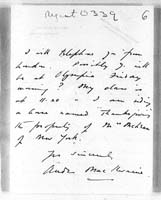 6
I will telephone you from
London. Possibly I will
be at Olympia Friday
morning? My class is
at 11.20 & I am riding
a horse named Thanksgiving
the property of Mr
of New York.
Yrs sincerely